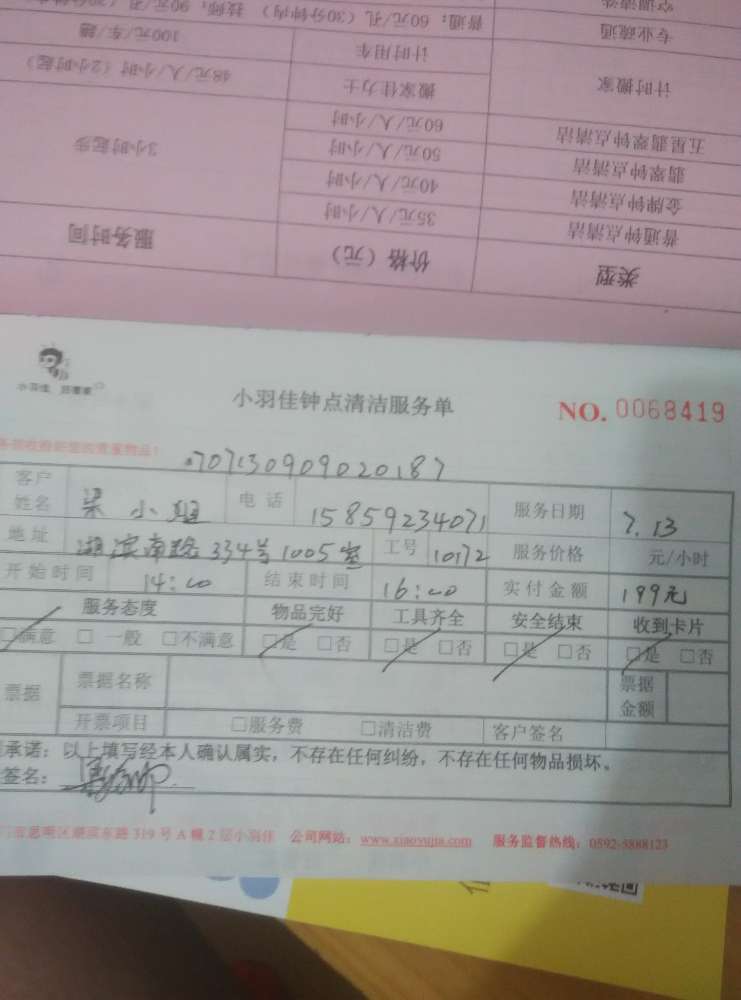 空调清洗
专业疏通 普通：60元/孔（30分钟内） 技师：90元/孔
计时搬家 计时用车 100元/车/趟
搬家佳力士 48元/人/小时（2小时起）
五星翡翠钟点清洁 60元/人/小时 3小时起步
翡翠钟点清洁 50元/人/小时
金牌钟点清洁 40元/人/小时
普通钟点清洁 35元/人/小时
类型 价格（元） 服务时间
小羽佳
小羽佳钟点清洁服务单 NO. 0068419
0707130909020187
客户姓名 梁小姐 电话 15859234071 服务日期 7.13
地址 湖滨南路334号1005室 工号 10172 服务价格 元/小时
开始时间 14:00 结束时间 16:00 实付金额 199元
服务态度 物品完好 工具齐全 安全结束 收到卡片
□满意 □一般 □不满意 □是 □否 □是 □否 □是 □否 □是 □否
票据 票据名称 票据金额
开票项目 □服务费 □清洁费 客户签名
承诺：以上填写经本人确认属实，不存在任何纠纷，不存在任何物品损坏。
签名：
市思明区湖滨东路319号A幢2层小羽佳 公司网站：www.xiaoyujia.com 服务监督热线：0592-5888123